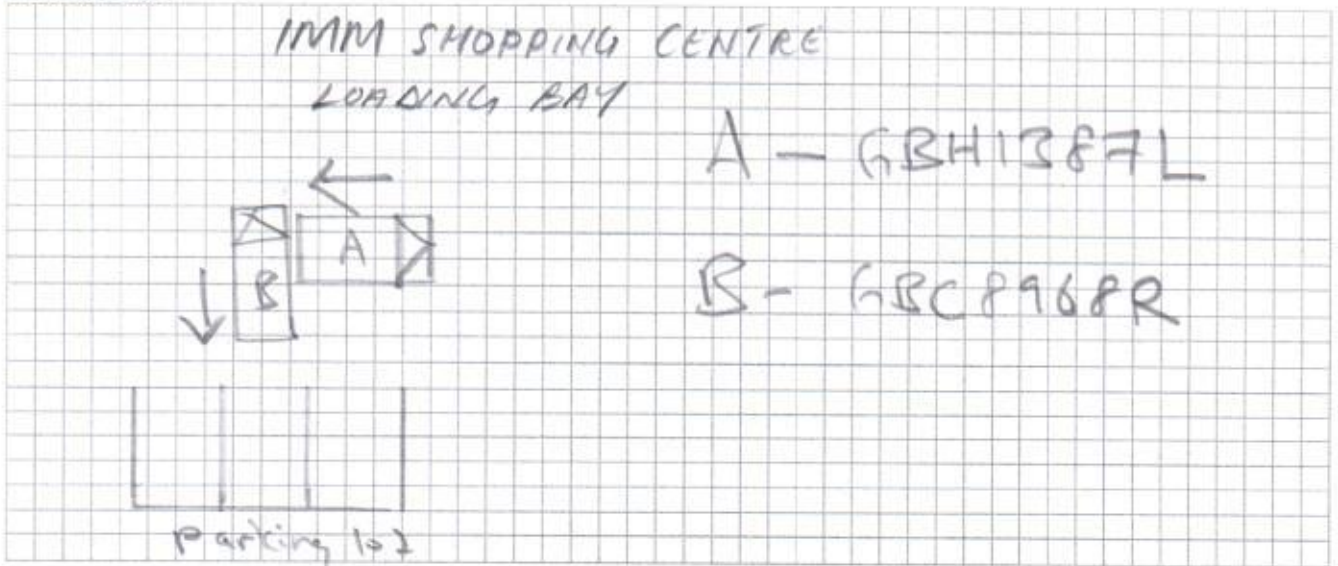 IMM SHOPPING CENTRE
LOADING BAY
A - GBH1387L
A
B - GBC8968R
B
parking lot